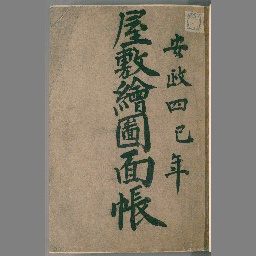 安政四巳年
屋敷繪圖面帳